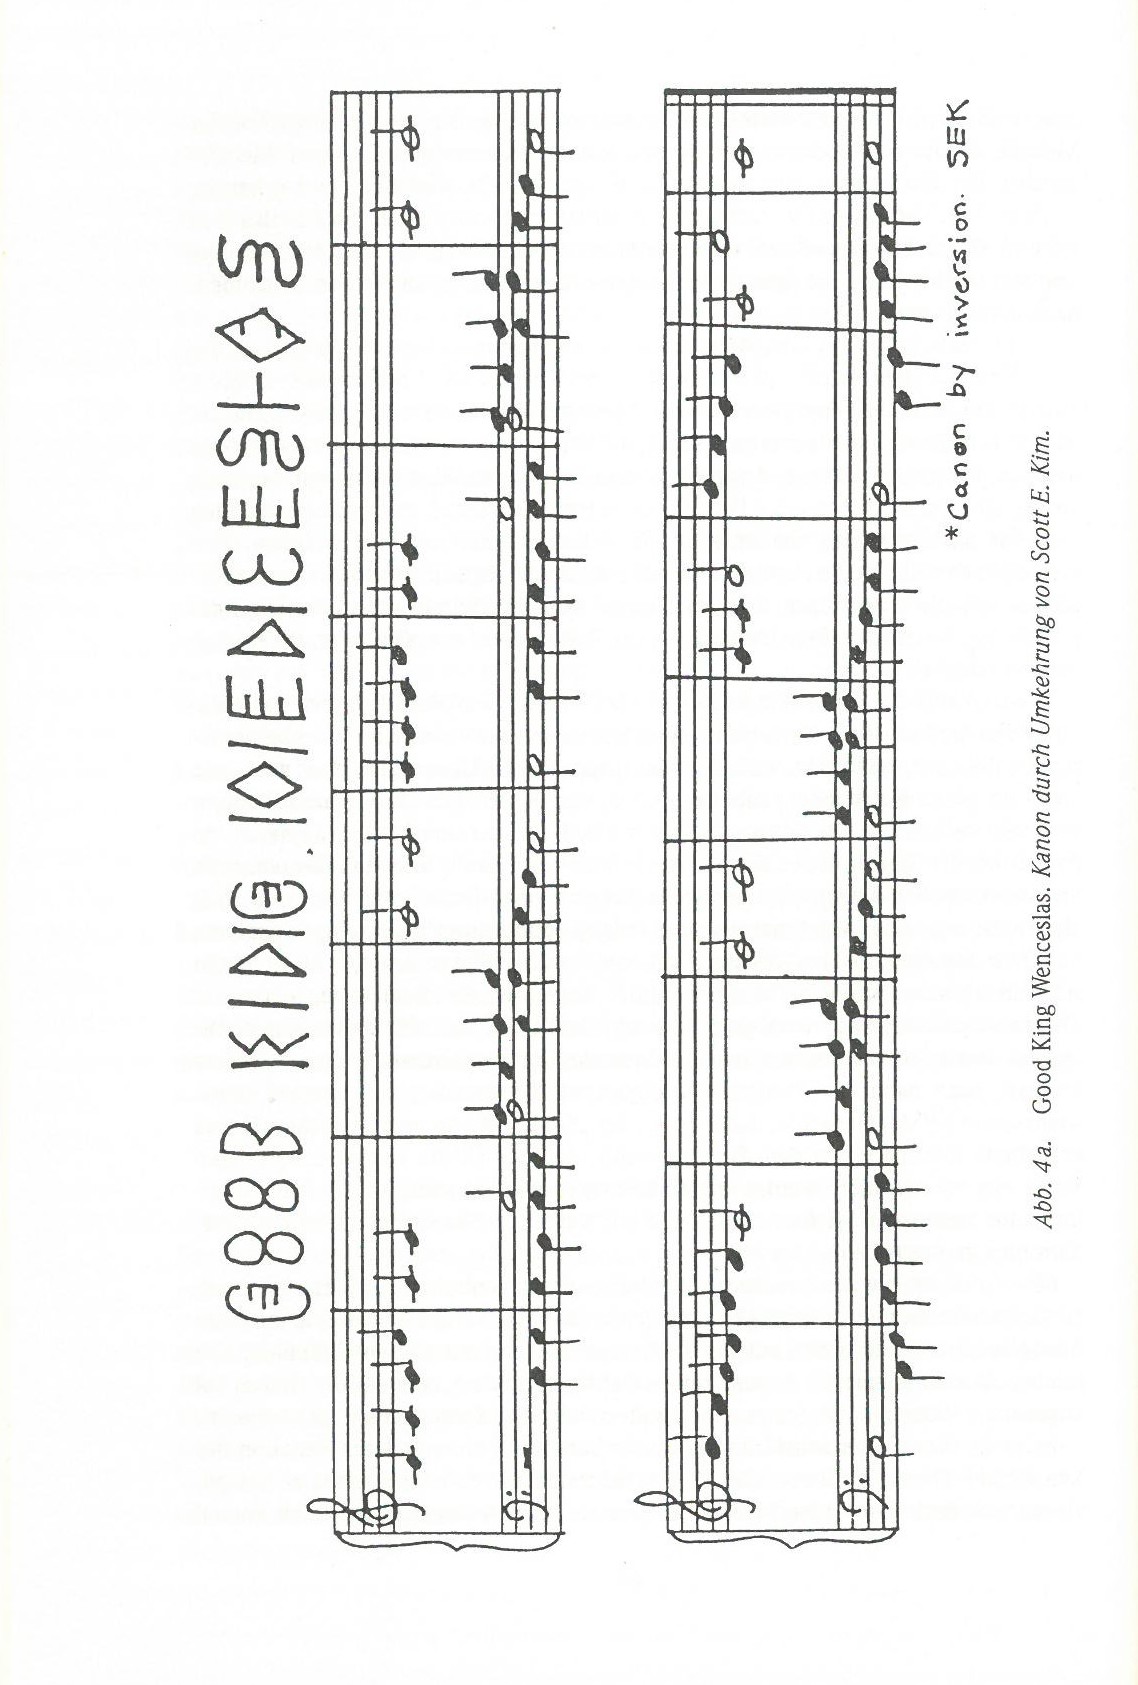 GOOD KING WENCESLAS
*Canon by inversion. SEK
Abb. 4a. Good King Wenceslas. Kanon durch Umkehrung von Scott E. Kim.